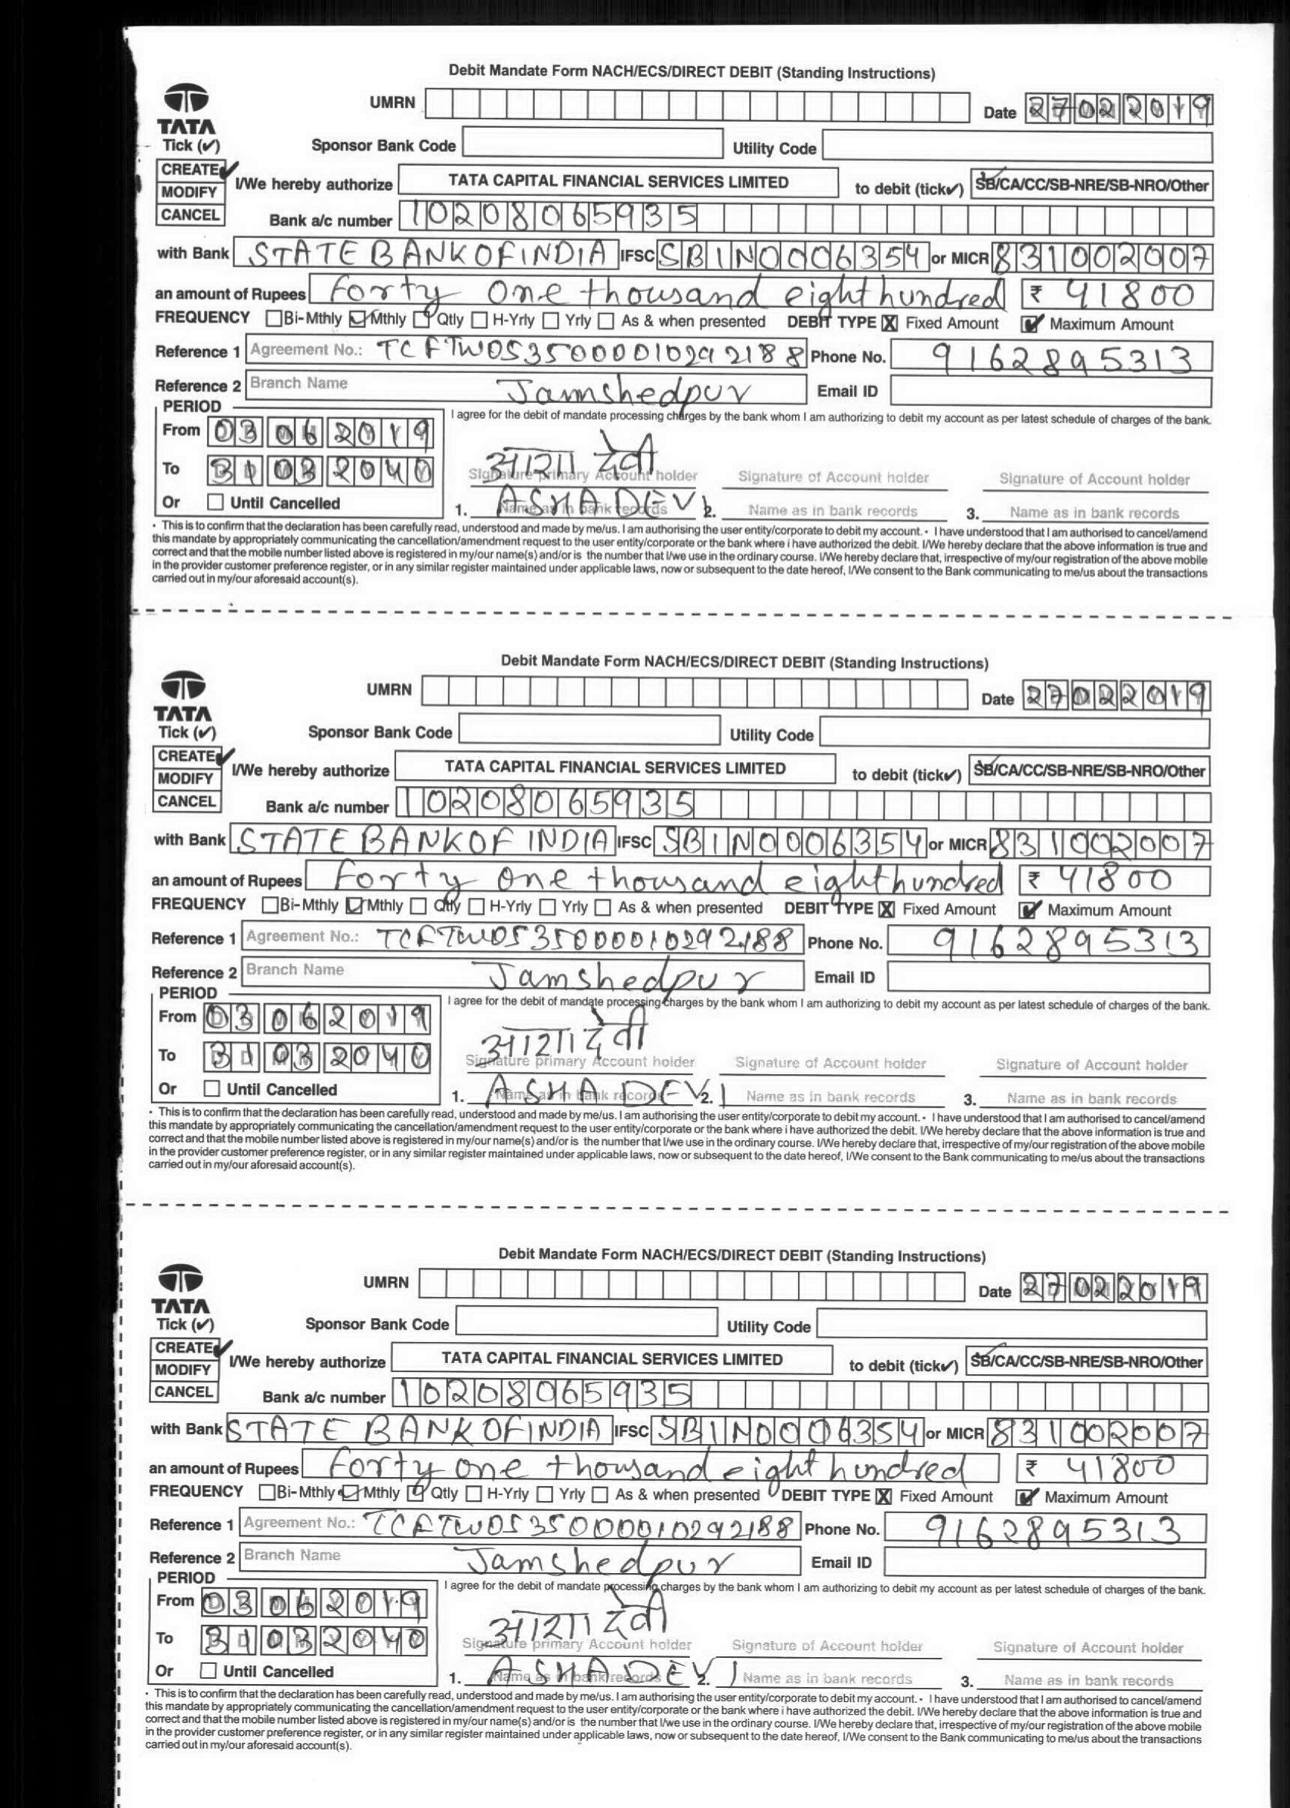 Debit Mandate Form NACH/ECS/DIRECT DEBIT (Standing Instructions)
TATA
UMRN Date 27022019
Tick (✓) Sponsor Bank Code Utility Code
CREATE ✓ I/We hereby authorize TATA CAPITAL FINANCIAL SERVICES LIMITED to debit (tick✓) SB/CA/CC/SB-NRE/SB-NRO/Other
MODIFY
CANCEL Bank a/c number 10208065935
with Bank STATE BANK OF INDIA IFSC SBIN0006354 or MICR 831002007
an amount of Rupees forty one thousand eight hundred ₹ 41800
FREQUENCY Bi-Mthly Mthly Qtly H-Yrly Yrly As & when presented DEBIT TYPE X Fixed Amount ✓ Maximum Amount
Reference 1 Agreement No.: TCFTW0535000010292188 Phone No. 9162895313
Reference 2 Branch Name Jamshedpur Email ID
PERIOD I agree for the debit of mandate processing charges by the bank whom I am authorizing to debit my account as per latest schedule of charges of the bank.
From 03062019
आशा देवी
To 31032040 Signature primary Account holder Signature of Account holder Signature of Account holder
Or Until Cancelled 1. ASHA DEVI Name as in bank records 2. Name as in bank records 3. Name as in bank records
• This is to confirm that the declaration has been carefully read, understood and made by me/us. I am authorising the user entity/corporate to debit my account. • I have understood that I am authorised to cancel/amend
this mandate by appropriately communicating the cancellation/amendment request to the user entity/corporate or the bank where i have authorized the debit. I/We hereby declare that the above information is true and
correct and that the mobile number listed above is registered in my/our name(s) and/or is the number that I/we use in the ordinary course. I/We hereby declare that, irrespective of my/our registration of the above mobile
in the provider customer preference register, or in any similar register maintained under applicable laws, now or subsequent to the date hereof, I/We consent to the Bank communicating to me/us about the transactions
carried out in my/our aforesaid account(s).
Debit Mandate Form NACH/ECS/DIRECT DEBIT (Standing Instructions)
TATA
UMRN Date 27022019
Tick (✓) Sponsor Bank Code Utility Code
CREATE ✓ I/We hereby authorize TATA CAPITAL FINANCIAL SERVICES LIMITED to debit (tick✓) SB/CA/CC/SB-NRE/SB-NRO/Other
MODIFY
CANCEL Bank a/c number 10208065935
with Bank STATE BANK OF INDIA IFSC SBIN0006354 or MICR 831002007
an amount of Rupees forty one thousand eight hundred ₹ 41800
FREQUENCY Bi-Mthly Mthly Qtly H-Yrly Yrly As & when presented DEBIT TYPE X Fixed Amount ✓ Maximum Amount
Reference 1 Agreement No.: TCFTW0535000010292188 Phone No. 9162895313
Reference 2 Branch Name Jamshedpur Email ID
PERIOD I agree for the debit of mandate processing charges by the bank whom I am authorizing to debit my account as per latest schedule of charges of the bank.
From 03062019
आशा देवी
To 31032040 Signature primary Account holder Signature of Account holder Signature of Account holder
Or Until Cancelled 1. ASHA DEVI Name as in bank records 2. Name as in bank records 3. Name as in bank records
• This is to confirm that the declaration has been carefully read, understood and made by me/us. I am authorising the user entity/corporate to debit my account. • I have understood that I am authorised to cancel/amend
this mandate by appropriately communicating the cancellation/amendment request to the user entity/corporate or the bank where i have authorized the debit. I/We hereby declare that the above information is true and
correct and that the mobile number listed above is registered in my/our name(s) and/or is the number that I/we use in the ordinary course. I/We hereby declare that, irrespective of my/our registration of the above mobile
in the provider customer preference register, or in any similar register maintained under applicable laws, now or subsequent to the date hereof, I/We consent to the Bank communicating to me/us about the transactions
carried out in my/our aforesaid account(s).
Debit Mandate Form NACH/ECS/DIRECT DEBIT (Standing Instructions)
TATA
UMRN Date 27022019
Tick (✓) Sponsor Bank Code Utility Code
CREATE ✓ I/We hereby authorize TATA CAPITAL FINANCIAL SERVICES LIMITED to debit (tick✓) SB/CA/CC/SB-NRE/SB-NRO/Other
MODIFY
CANCEL Bank a/c number 10208065935
with Bank STATE BANK OF INDIA IFSC SBIN0006354 or MICR 831002007
an amount of Rupees forty one thousand eight hundred ₹ 41800
FREQUENCY Bi-Mthly Mthly Qtly H-Yrly Yrly As & when presented DEBIT TYPE X Fixed Amount ✓ Maximum Amount
Reference 1 Agreement No.: TCFTW0535000010292188 Phone No. 9162895313
Reference 2 Branch Name Jamshedpur Email ID
PERIOD I agree for the debit of mandate processing charges by the bank whom I am authorizing to debit my account as per latest schedule of charges of the bank.
From 03062019
आशा देवी
To 31032040 Signature primary Account holder Signature of Account holder Signature of Account holder
Or Until Cancelled 1. ASHA DEVI Name as in bank records 2. Name as in bank records 3. Name as in bank records
• This is to confirm that the declaration has been carefully read, understood and made by me/us. I am authorising the user entity/corporate to debit my account. • I have understood that I am authorised to cancel/amend
this mandate by appropriately communicating the cancellation/amendment request to the user entity/corporate or the bank where i have authorized the debit. I/We hereby declare that the above information is true and
correct and that the mobile number listed above is registered in my/our name(s) and/or is the number that I/we use in the ordinary course. I/We hereby declare that, irrespective of my/our registration of the above mobile
in the provider customer preference register, or in any similar register maintained under applicable laws, now or subsequent to the date hereof, I/We consent to the Bank communicating to me/us about the transactions
carried out in my/our aforesaid account(s).